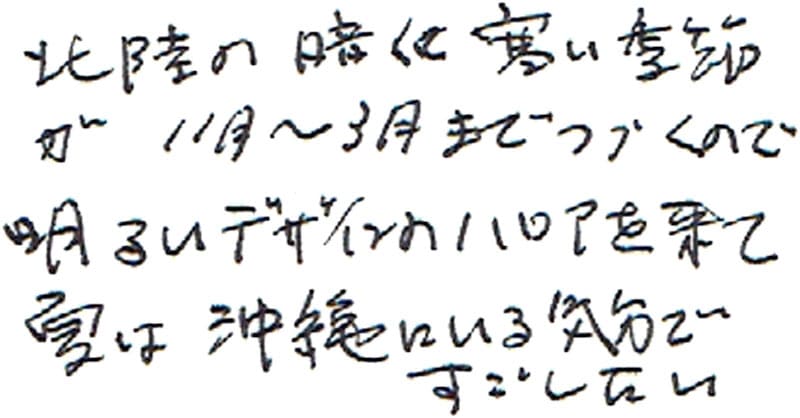 北陸の暗く寒い季節
が 11月〜3月までつづくので
明るいデザインのハロアを来て
夏は 沖縄にいる気分で
すごしたい